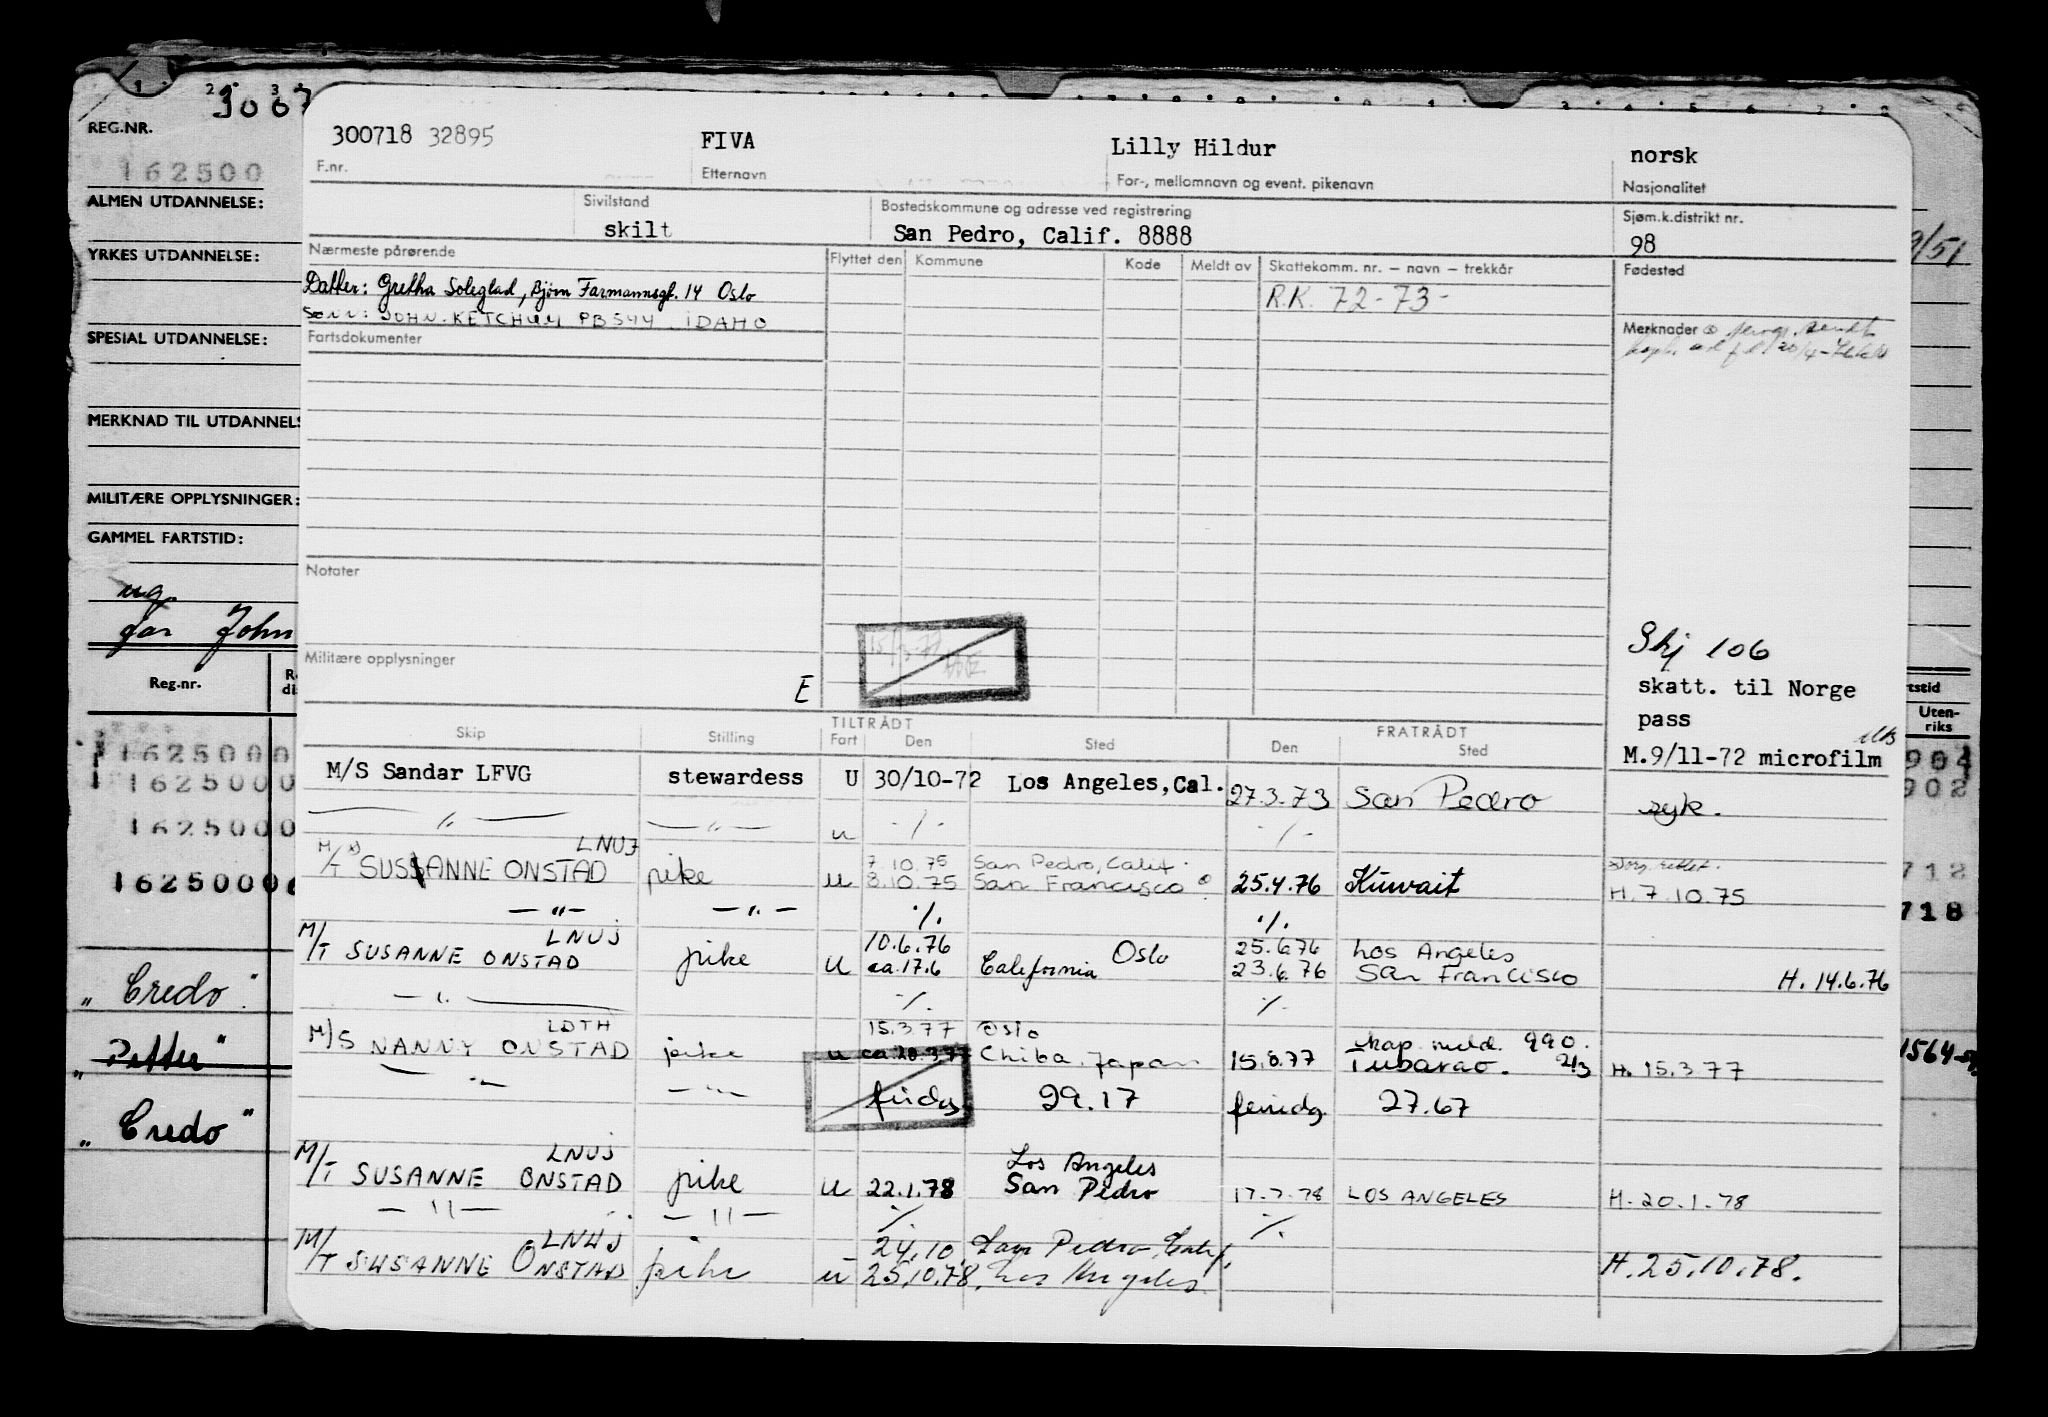 3067
REG.NR.
162500
ALMEN UTDANNELSE:
YRKES UTDANNELSE:
SPESIAL UTDANNELSE:
MERKNAD TIL UTDANNELS
MILITÆRE OPPLYSNINGER:
GAMMEL FARTSTID:
far John
Reg.nr.
1625000
1625000
1625000
1625000
"Credo"
"Petter"
"Credo"
300718 32895 FIVA Lilly Hildur norsk
F.nr. Etternavn For-, mellomnavn og event. pikenavn Nasjonalitet
Sivilstand Bostedskommune og adresse ved registrering Sjøm.k.distrikt nr.
skilt San Pedro, Calif. 8888 98
Nærmeste pårørende Flyttet den Kommune Kode Meldt av Skattekomm. nr. – navn – trekkår Fødested
Datter: Gretha Soleglad, Bjørn Farmannsgt. 14 Oslo R.K. 72-73-
Sønn: JOHN. KETCHUM PB 544 . IDAHO
Fartsdokumenter Merknader
Notater
Militære opplysninger
E
Skj 106
skatt. til Norge
pass
M.9/11-72 microfilm
TILTRÅDT FRATRÅDT
Skip Stilling Fart Den Sted Den Sted
M/S Sandar LFVG stewardess U 30/10-72 Los Angeles, Cal. 27.3.73 San Pedro syk.
— " — — " — u ·/· ·/·
LNUJ 7.10.75 San Pedro, Calif.
M/T SUSSANNE ONSTAD pike u 8.10.75 San Francisco 25.4.76 Kuwait H. 7.10.75
— " — — " — ·/· ·/·
LNUJ 10.6.76 Oslo 25.6.76 Los Angeles
M/T SUSANNE ONSTAD pike u ca.17.6 California 23.6.76 San Francisco H. 14.6.76
— " — ·/· ·/·
LDTH 15.3.77 Oslo skap meld. 990.
M/S NANNY ONSTAD pike u ca.20.3.77 Chiba, Japan 15.8.77 Tubarao. 2/3 H. 15.3.77
— " — — " — 29.17 27.67
LNUJ Los Angeles
M/T SUSANNE ONSTAD pike u 22.1.78 San Pedro 17.7.78 LOS ANGELES H. 20.1.78
— " — — " — ·/· ·/·
LNUJ 24.10. San Pedro, Calif,
M/T SUSANNE ONSTAD pike u 25.10.78. Los Angeles H. 25.10.78.
9/51
tstid
Uten-
riks
904
902
712
718
1564